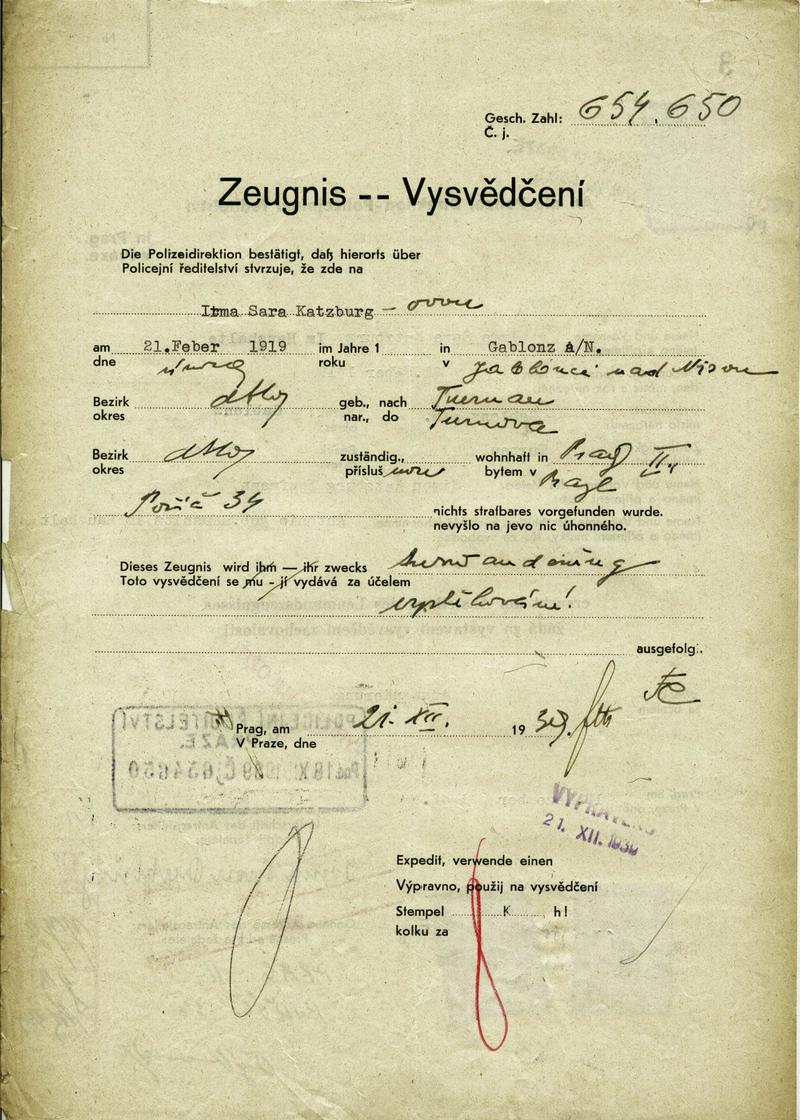 Gesch. Zahl: 654,650
Č. j.
Zeugnis -- Vysvědčení
Die Polizeidirektion bestätigt, daß hierorts über
Policejní ředitelství stvrzuje, že zde na
Irma Sara Katzburg –
am 21.Feber 1919 im Jahre 1 in Gablonz A/N.
dne února roku v Jablonci nad Nisou
Bezirk dtto geb., nach Turnau
okres nar., do Turnova
Bezirk dtto zuständig., wohnhaft in Prag II.,
okres přísluš bytem v Praze
Poříč 34 nichts strafbares vorgefunden wurde.
nevyšlo na jevo nic úhonného.
Dieses Zeugnis wird ihm — ihr zwecks Auswanderung
Toto vysvědčení se mu - jí vydává za účelem
vystěhování
ausgefolg.
Prag, am 21. XII. 1939.
V Praze, dne
POLICEJNÍ ŘEDITELSTVÍ
21. XII. 1939
Expedit, verwende einen
Výpravno, použij na vysvědčení
Stempel K h!
kolku za